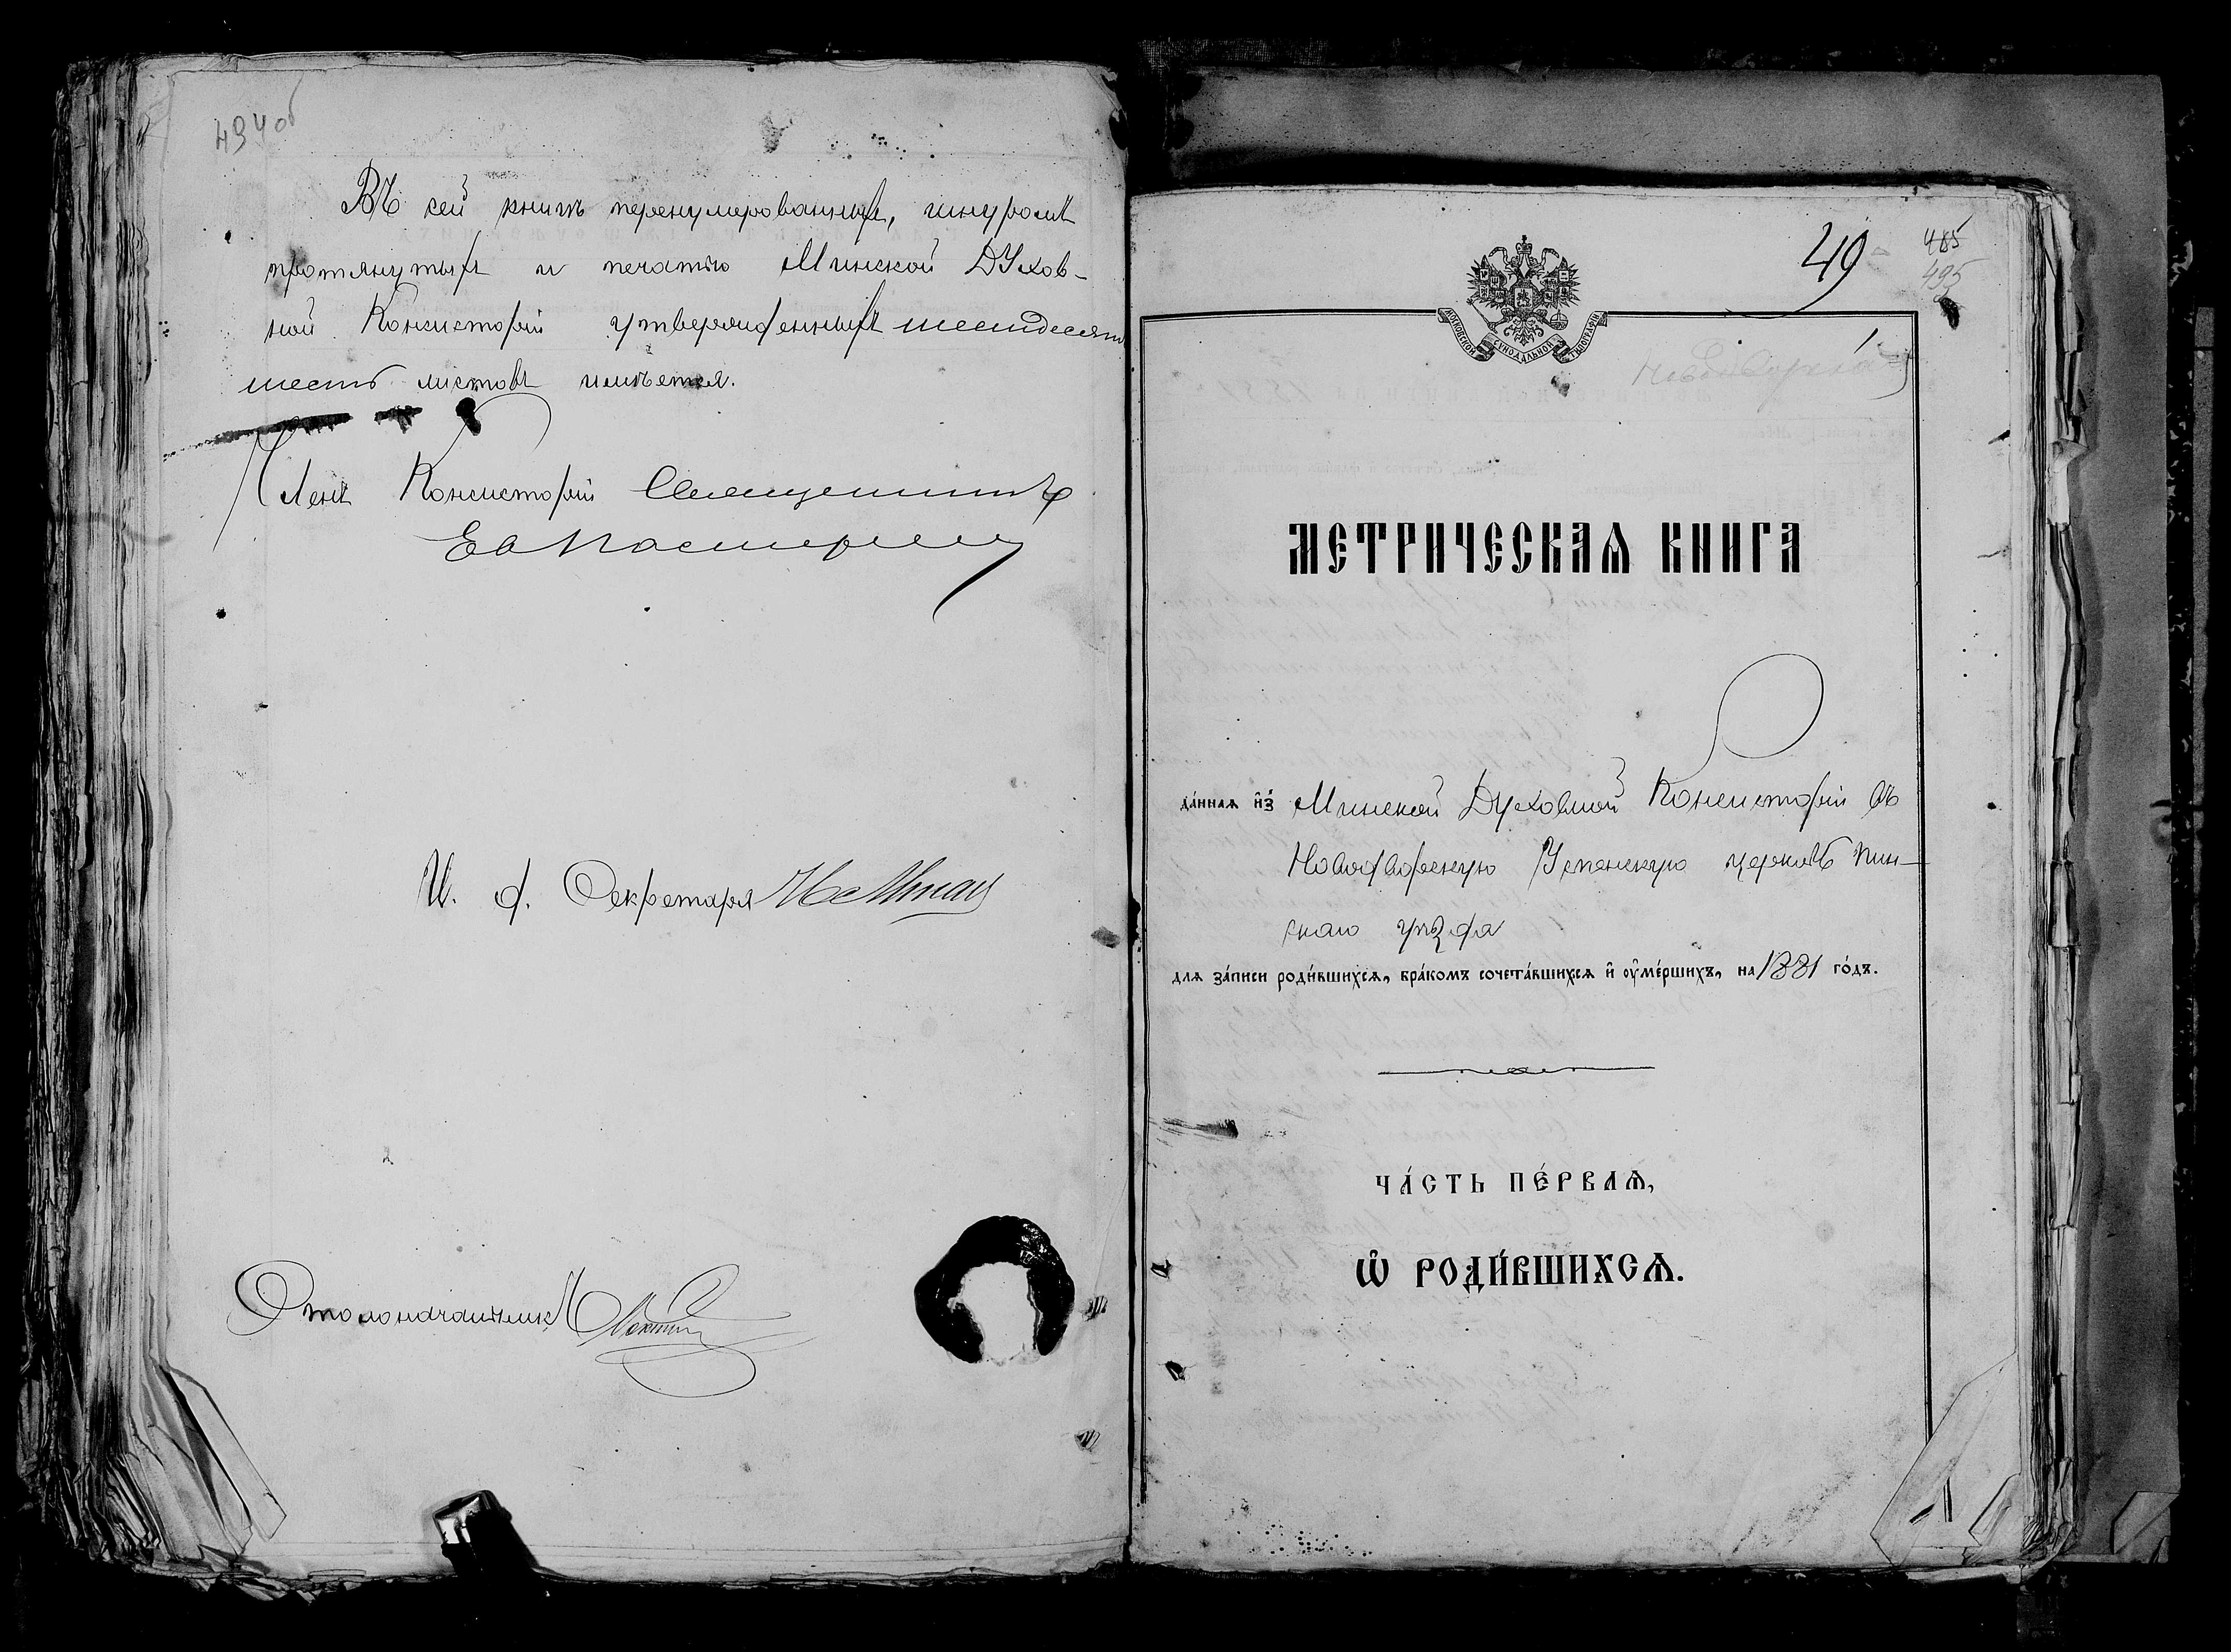 494об
Въ сей книгѣ перенумерованныхъ, шнуромъ
протянутыхъ и печатью Минской Духов-
ной Консисторіи утвержденныхъ шестьдесятъ
шесть листовъ имѣется.
Членъ Консисторіи Священникъ
И. д. Секретаря
Столоначальникъ
49
485
495
МОСКОВСКОЙ СѴНОДАЛЬНОЙ ТѴПОГРАФІИ
Новодворская
МЕТРИЧЕСКАѦ КНИГА
да́ннаѧ и҆з̾ Минской Духовной Консисторіи въ
Новодворскую Успенскую церковь Пин-
скаго уѣзда
длѧ за́писи роди́вшихсѧ, бра́комъ сочета́вшихсѧ и҆ ѹ҆ме́ршихъ, на 1881 го́дъ.
ЧА́СТЬ ПЕ́РВАѦ,
Ѡ҆ РОДИ́ВШИХСѦ.
1